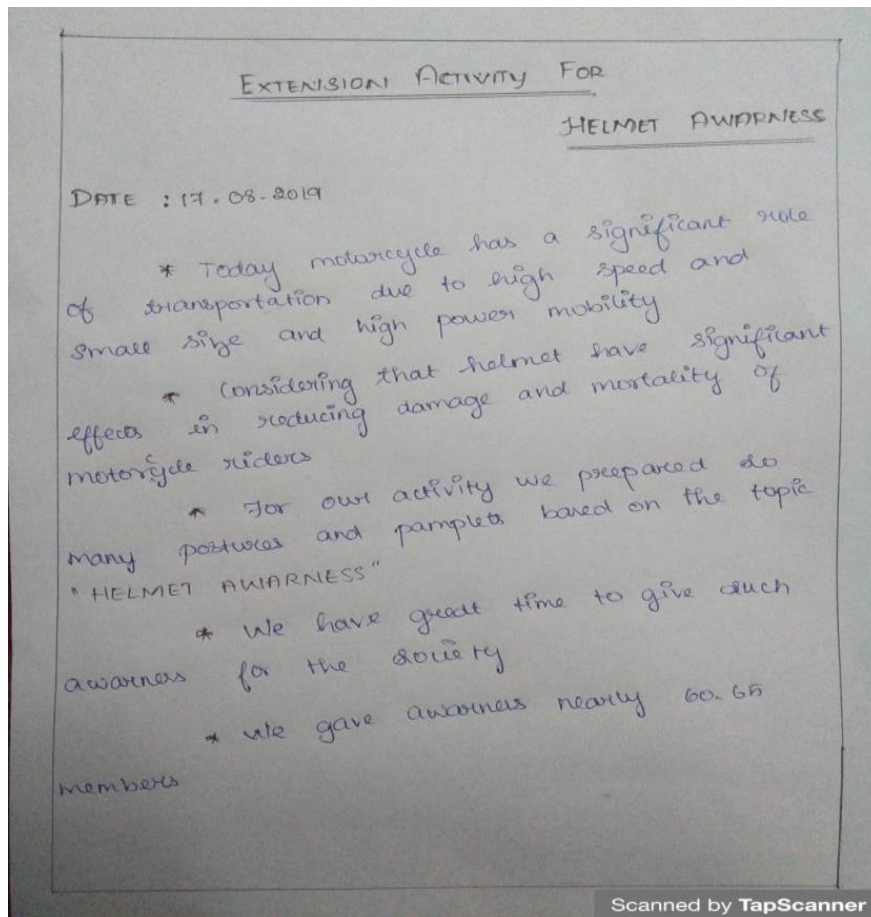 EXTENSION ACTIVITY FOR
HELMET AWARNESS
DATE : 17.08.2019
* Today motorcycle has a significant role
of transportation due to high speed and
small size and high power mobility
* Considering that helmet have significant
effects in reducing damage and mortality of
motorcycle riders
* For our activity we prepared so
many postures and pamplets based on the topic
"HELMET AWARNESS"
* We have great time to give such
awarness for the society
* We gave awarness nearly 60.65
members
Scanned by TapScanner